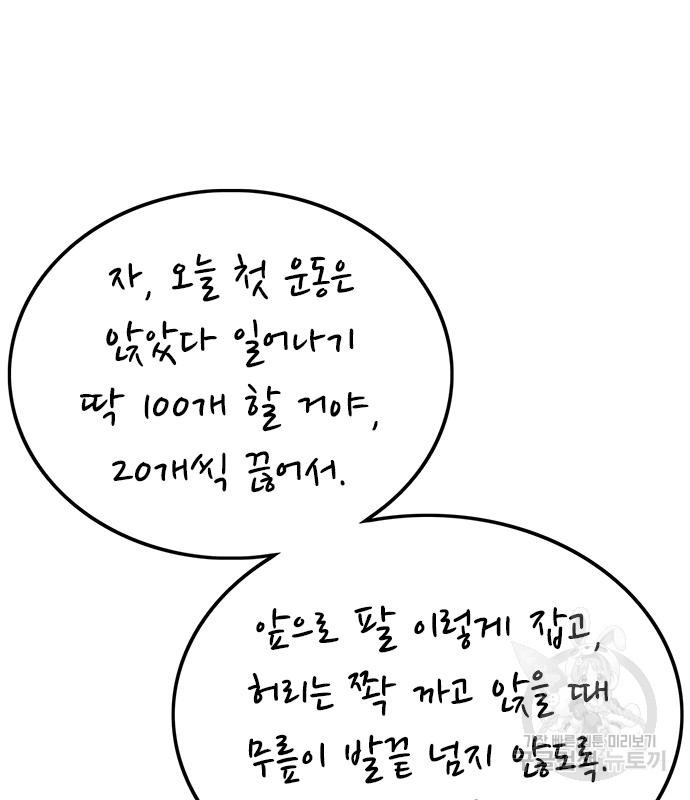 자, 오늘 첫 운동은
앉았다 일어나기
딱 100개 할 거야,
20개씩 끊어서.
앞으로 팔 이렇게 잡고,
허리는 쫙 까고 앉을 때
무릎이 발끝 넘지 않도록.
가장 빠른 웹툰 미리보기
뉴토끼